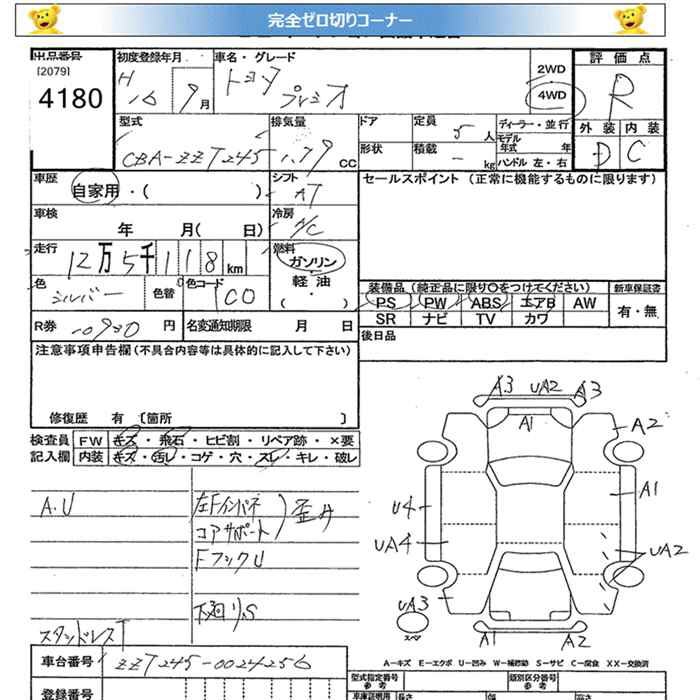 完全ゼロ切りコーナー
出品番号
[2079]
4180
初度登録年月
H 16 9月
車名・グレード
トヨタ プレミオ
2WD
4WD
評価点
R
外装 内装
D C
型式
CBA-ZZT245
排気量
1.79 CC
ドア
形状
定員
5人
積載
- kg
ディーラー・並行
モデル年式 年
ハンドル 左・右
車歴
自家用・( )
シフト
AT
セールスポイント(正常に機能するものに限ります)
車検
年 月( 日)
冷房
A/C
走行
12万5千118km
燃料
ガソリン・軽油・( )
色
シルバー
色替
色コード
1C0
装備品(純正品に限り○をつけてください)
新車保証書
PS PW ABS エアB AW
有・無
SR ナビ TV カワ
R券
10930円
名変通知期限 月 日
後日品
注意事項申告欄(不具合内容等は具体的に記入して下さい)
修復歴 有 [箇所 ]
検査員 FW キズ・飛石・ヒビ割・リペア跡・×要
記入欄 内装 キズ・汚レ・コゲ・穴・スレ・キレ・破レ
A.U
左Fインパネ
コアサポート
歪み
FフックU
下廻りS
スタッドレスT
A3 UA2 A3
A1
A2
A1
U4
UA4
UA2
UA3
スペ
A1 A2
A-キズ E-エクボ U-凹み W-補修跡 S-サビ C-腐食 XX-交換済
車台番号
ZZT245-0024256
登録番号
型式指定番号
参考
類別区分番号
参考
車庫証明用
長さ
幅
高さ